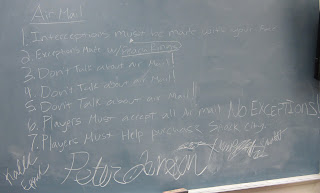 Air Mail
1. Interceptions must be made
2. Exceptions Made w/
3. Don't Talk about Air Mail!
4. Don't Talk about air Mail!
5. Don't Talk about air Mail!
6. Players Must accept all air mail NO EXCEPTIONS!
7. Players Must Help purchase
Peter